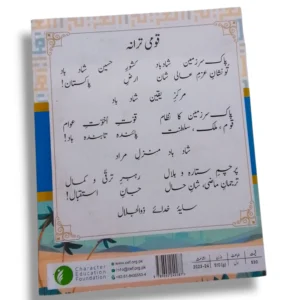 قومی ترانہ
پاک سرزمین شاد باد کشورِ حسین شاد باد
تو نشانِ عزمِ عالی شان ارضِ پاکستان!
مرکزِ یقین شاد باد
پاک سرزمین کا نظام قوتِ اخوتِ عوام
قوم، ملک، سلطنت پائندہ تابندہ باد!
شاد باد منزلِ مراد
پرچمِ ستارہ و ہلال رہبرِ ترقی و کمال
ترجمانِ ماضی، شانِ حال جانِ استقبال!
سایۂ خدائے ذوالجلال
Character
Education
Foundation